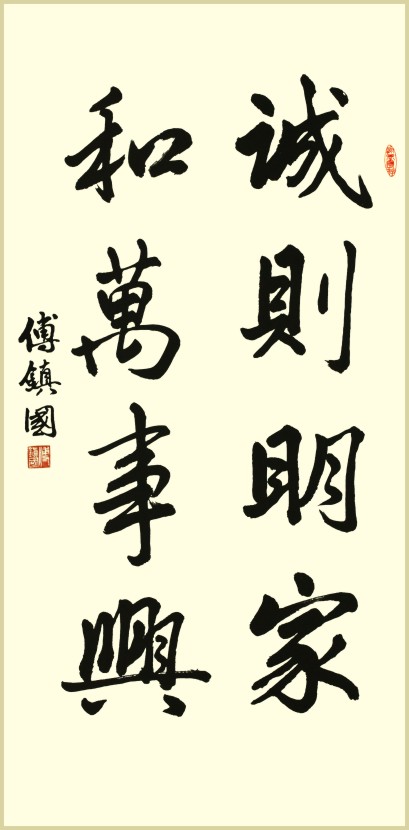 誠則明家
和萬事興
傅鎮國